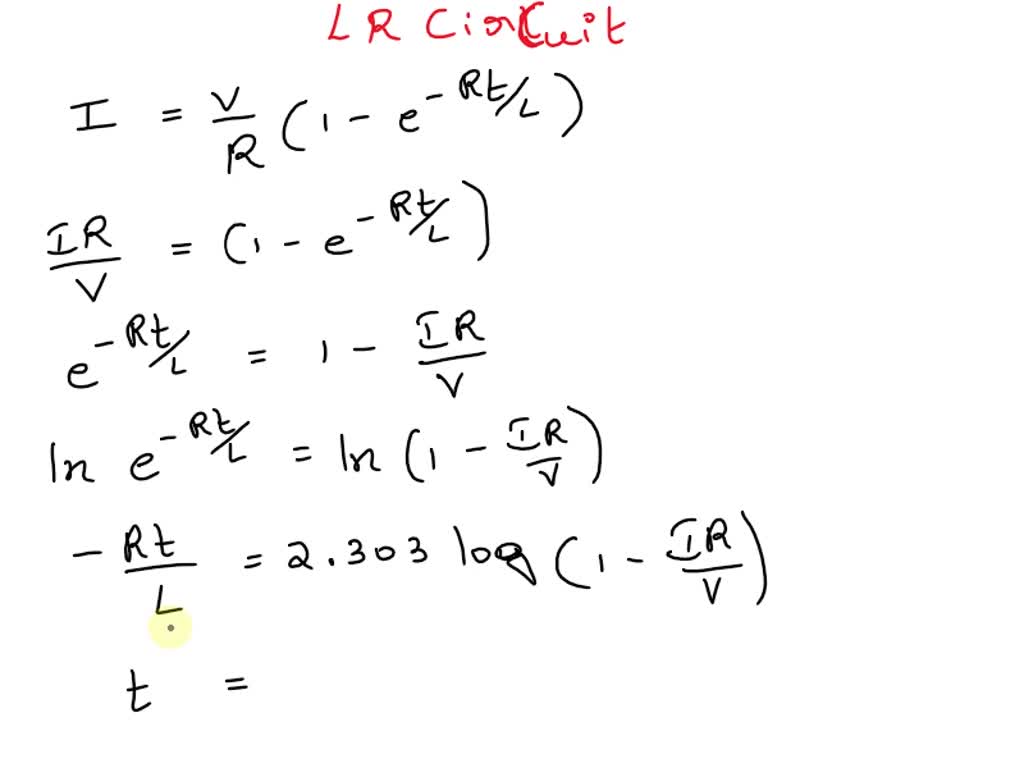 LR Circuit
I = V/R (1 - e^-Rt/L)
IR/V = (1 - e^-Rt/L)
e^-Rt/L = 1 - IR/V
ln e^-Rt/L = ln (1 - IR/V)
- Rt/L = 2.303 log (1 - IR/V)
t =